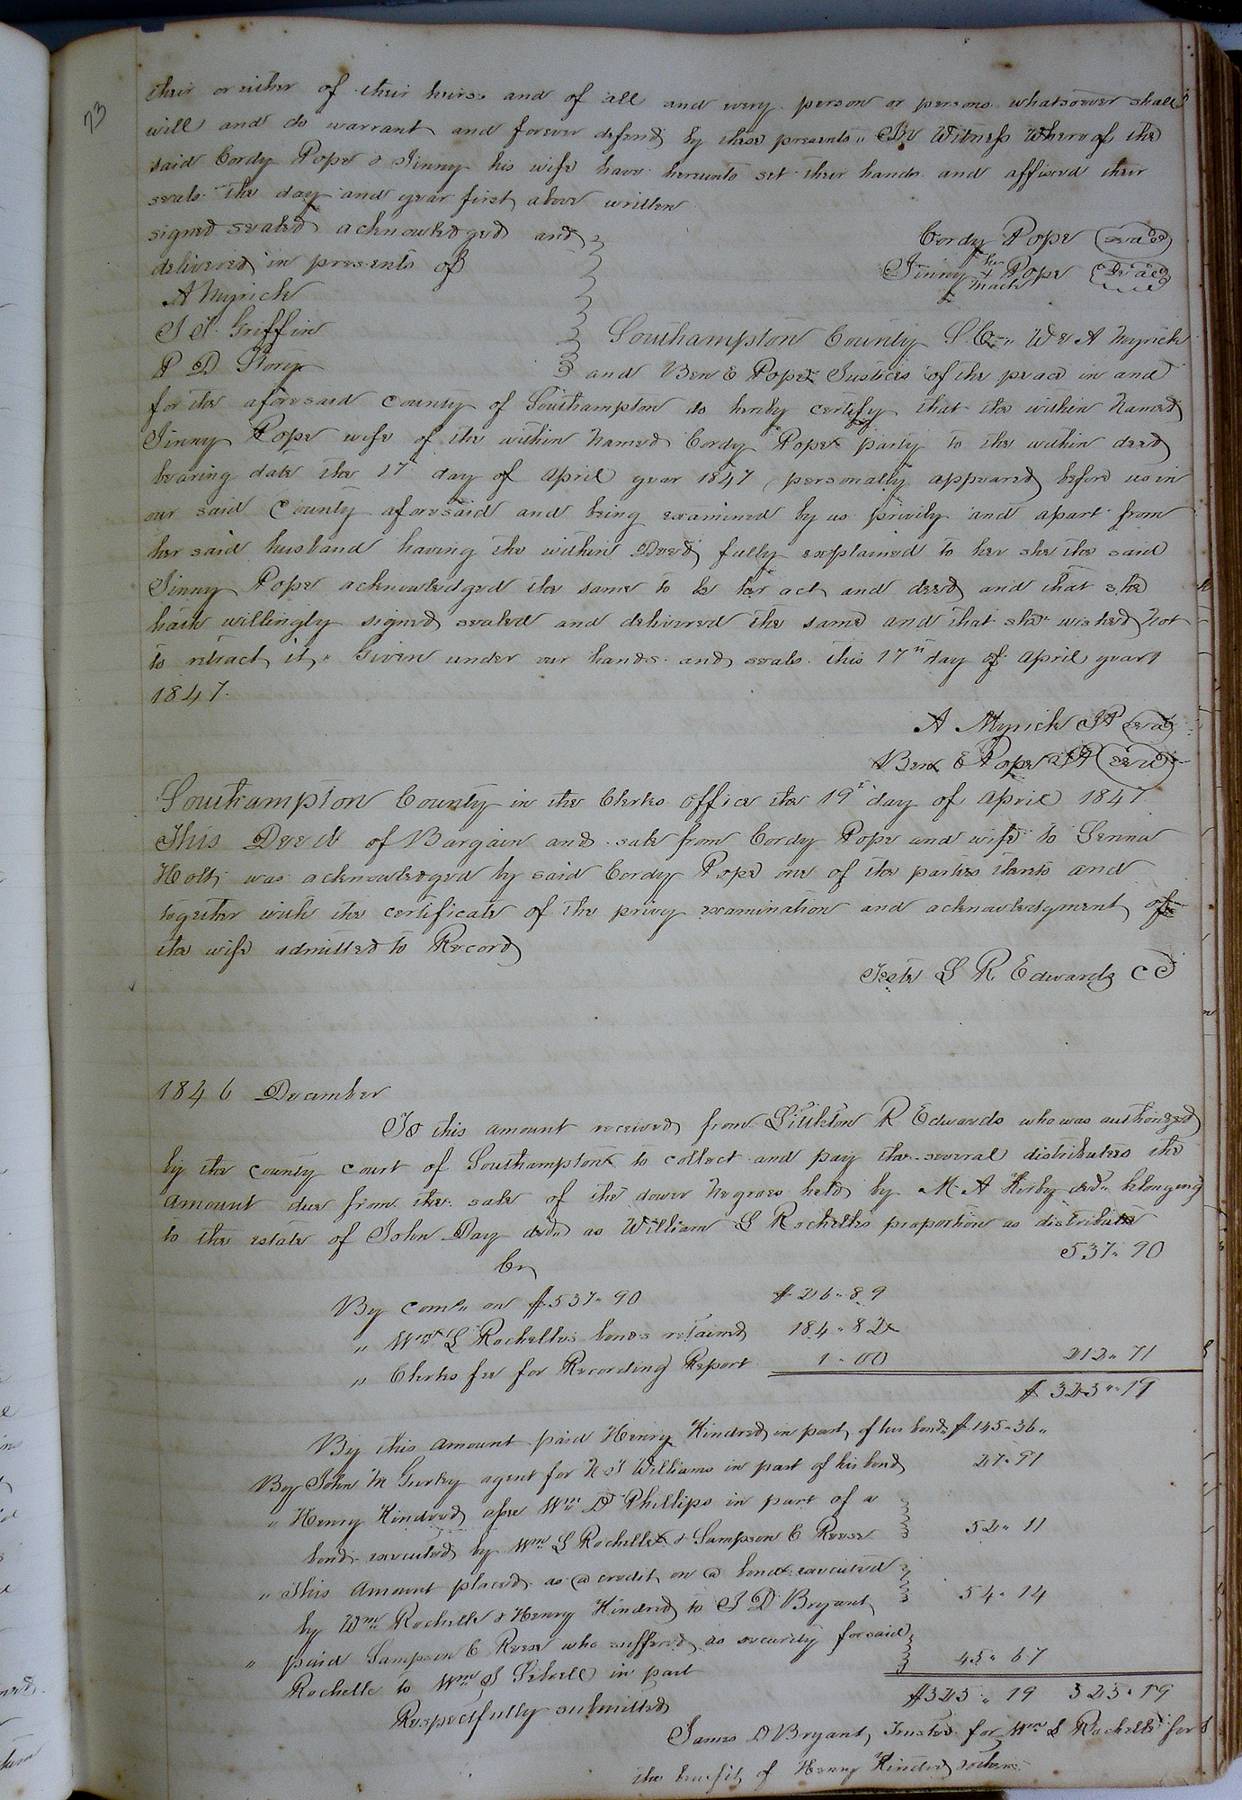 73
their or either of their heirs and of all and every person or persons whatsoever shall
will and do warrant and forever defend by these presents. In Witness whereof the
said Cordy Pope & Jinny his wife have hereunto set their hands and affixed their
seals the day and year first above written
signed sealed acknowledged and
delivered in presents of
Cordy Pope (seal)
Jinny her + mark Pope (Seal)
A Myrick
J J Griffin
P D Story
Southampton County S Ct: We A Myrick
and Ben E Pope Justices of the peace in and
for the aforesaid county of Southampton do hereby certify that the within named
Jinny Pope wife of the within named Cordy Pope party to the within deed
bearing date the 17 day of April year 1847 personally appeared before us in
our said County aforesaid and being examined by us privily and apart from
her said husband having the within Deed fully explained to her she the said
Jinny Pope acknowledged the same to be her act and deed and that she
hath willingly signed sealed and delivered the same and that she wished not
to retract it. Given under our hands and seals this 17th day of April year
1847.
A Myrick JP (seal)
Ben E Pope JP (seal)
Southampton County in the Clerks office the 19t day of April 1847
This Deed of Bargain and sale from Cordy Pope and wife to
Holt was acknowledged by said Cordy Pope one of the parties thereto and
together with the certificate of the privy examination and acknowledgment of
the wife admitted to Record
Teste L R Edwards CC
1846 December
To this amount received from Littleton R Edwards who was authorized
by the county court of Southampton to collect and pay the several distributees the
amount due from the sale of the dower negroes held by M A Kirby decd. belonging
to the estate of John Day decd. as William L Rochelles proportion as distributee
537.90
Cr
By comn. on $537.90 $26.89
" Wm L Rochelles bonds retained 184.82
" Clerks fee for Recording Report 1.00 212.71
$ 325.19
By this amount paid Henry Kindred in part of his bond $145.36
By John M Gurley agent for N J Williams in part of his bond 27.91
" Henry Kindred assee Wm D Phillips in part of a
bond executed by Wm L Rochelle & Sampson C Reese 52.11
" This amount placed as a credit on a bond executed
by Wm Rochelle & Henry Kindred to J D Bryant 54.14
" paid Sampson C Reese who suffered as security for said
Rochelle to Wm J Sebrell in part 45.67
$325.19 325.19
Respectfully submitted
James D Bryant, Trustee for Wm L Rochelle for
the benefit of Henry Kindred & others